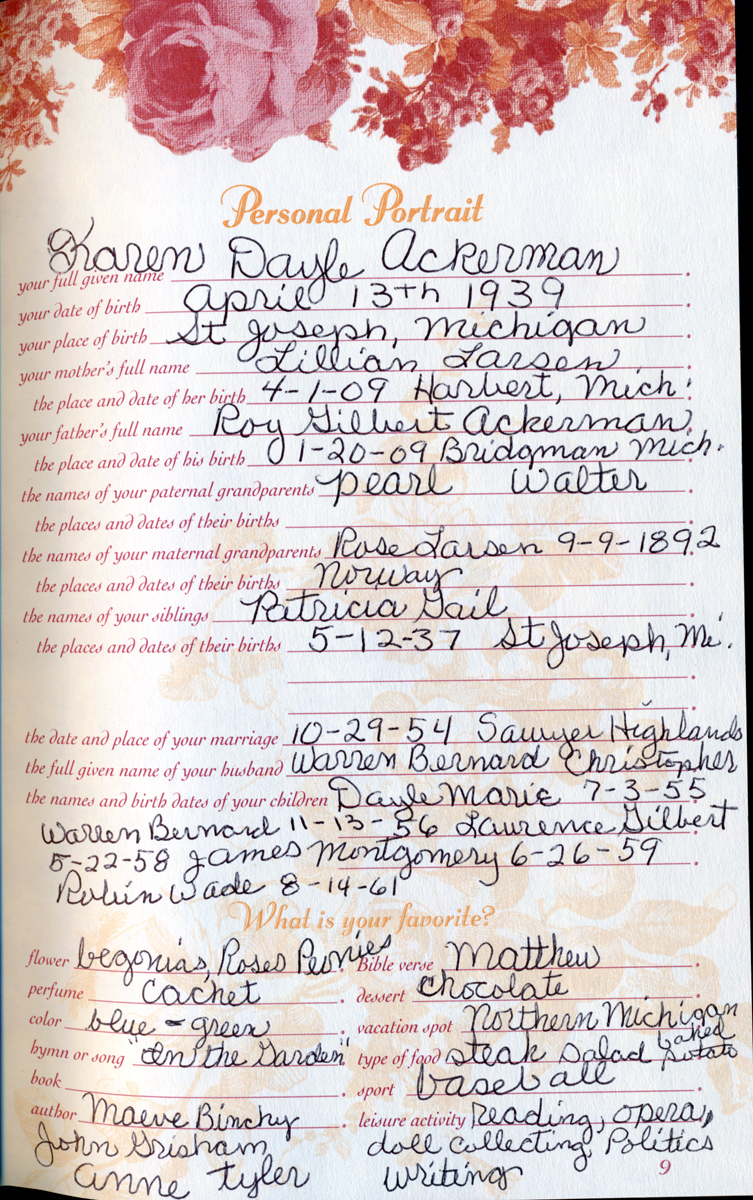 Personal Portrait
your full given name Karen Dayle Ackerman.
your date of birth April 13th 1939.
your place of birth St Joseph, Michigan.
your mother's full name Lillian Larsen.
the place and date of her birth 4-1-09 Harbert, Mich.
your father's full name Roy Gilbert Ackerman.
the place and date of his birth 1-20-09 Bridgman Mich.
the names of your paternal grandparents Pearl Walter.
the places and dates of their births .
the names of your maternal grandparents Rose Larsen 9-9-1892.
the places and dates of their births Norway.
the names of your siblings Patricia Gail.
the places and dates of their births 5-12-37 St Joseph, Mi.
.
.
the date and place of your marriage 10-29-54 Sawyer Highlands
the full given name of your husband Warren Bernard Christopher.
the names and birth dates of your children Dayle Marie 7-3-55.
Warren Bernard 11-13-56 Laurence Gilbert
5-22-58 James Montgomery 6-26-59.
Robin Wade 8-14-61
What is your favorite?
flower begonias, Roses Peonies. Bible verse Matthew.
perfume Cachet. dessert Chocolate.
color blue - green. vacation spot Northern Michigan.
hymn or song "In the Garden". type of food steak salad baked potato
book . sport baseball.
author Maeve Binchy. leisure activity reading, opera,
John Grisham doll collecting, Politics
Anne Tyler writing
9